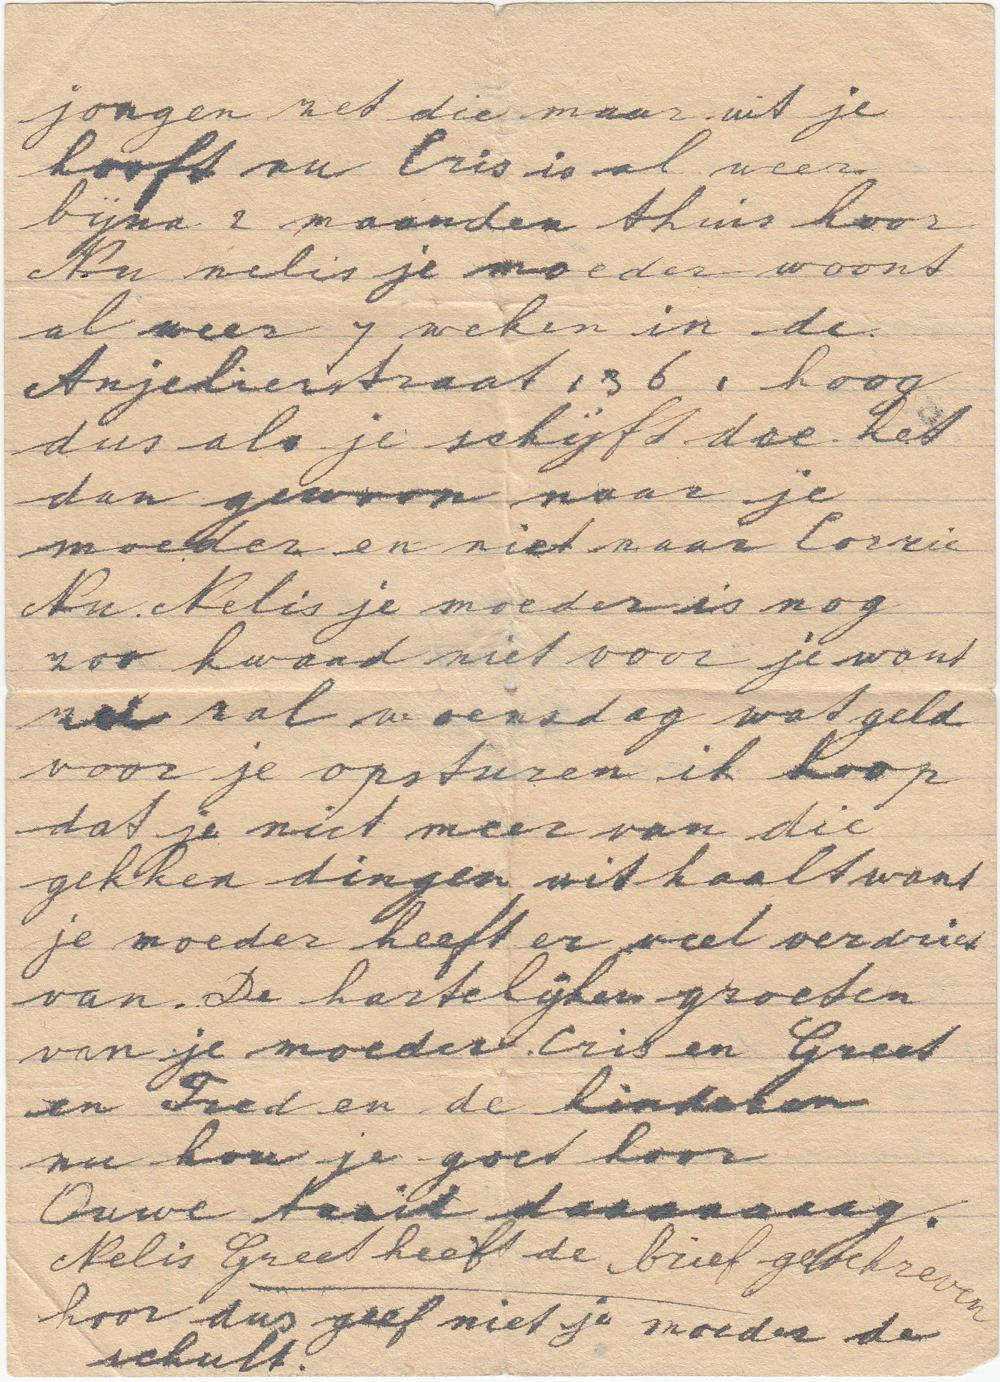 jongen zet die maar uit je
hooft nu Cris is al weer
bijna 2 maanden thuis hoor
Nu nelis je moeder woont
al weer 7 weken in de.
Anjelierstraat 136 1 hoog
dus als je schijft doe het
dan gewoon naar je
moeder en niet naar Corrie
Nu. Nelis je moeder is nog
zoo kwaad niet voor je want
zei zal woensdag wat geld
voor je opsturen ik hoop
dat je niet meer van die
gekken dingen uithaalt want
je moeder heeft er veel verdriet
van. De hartelijken groeten
van je moeder. Cris en Greet
en Fred en de kinderen
nu hou je goet hoor
Ouwe daaaaaaag.
Nelis Greet heeft de brief geschreven
hoor dus geef niet je moeder de
schult.